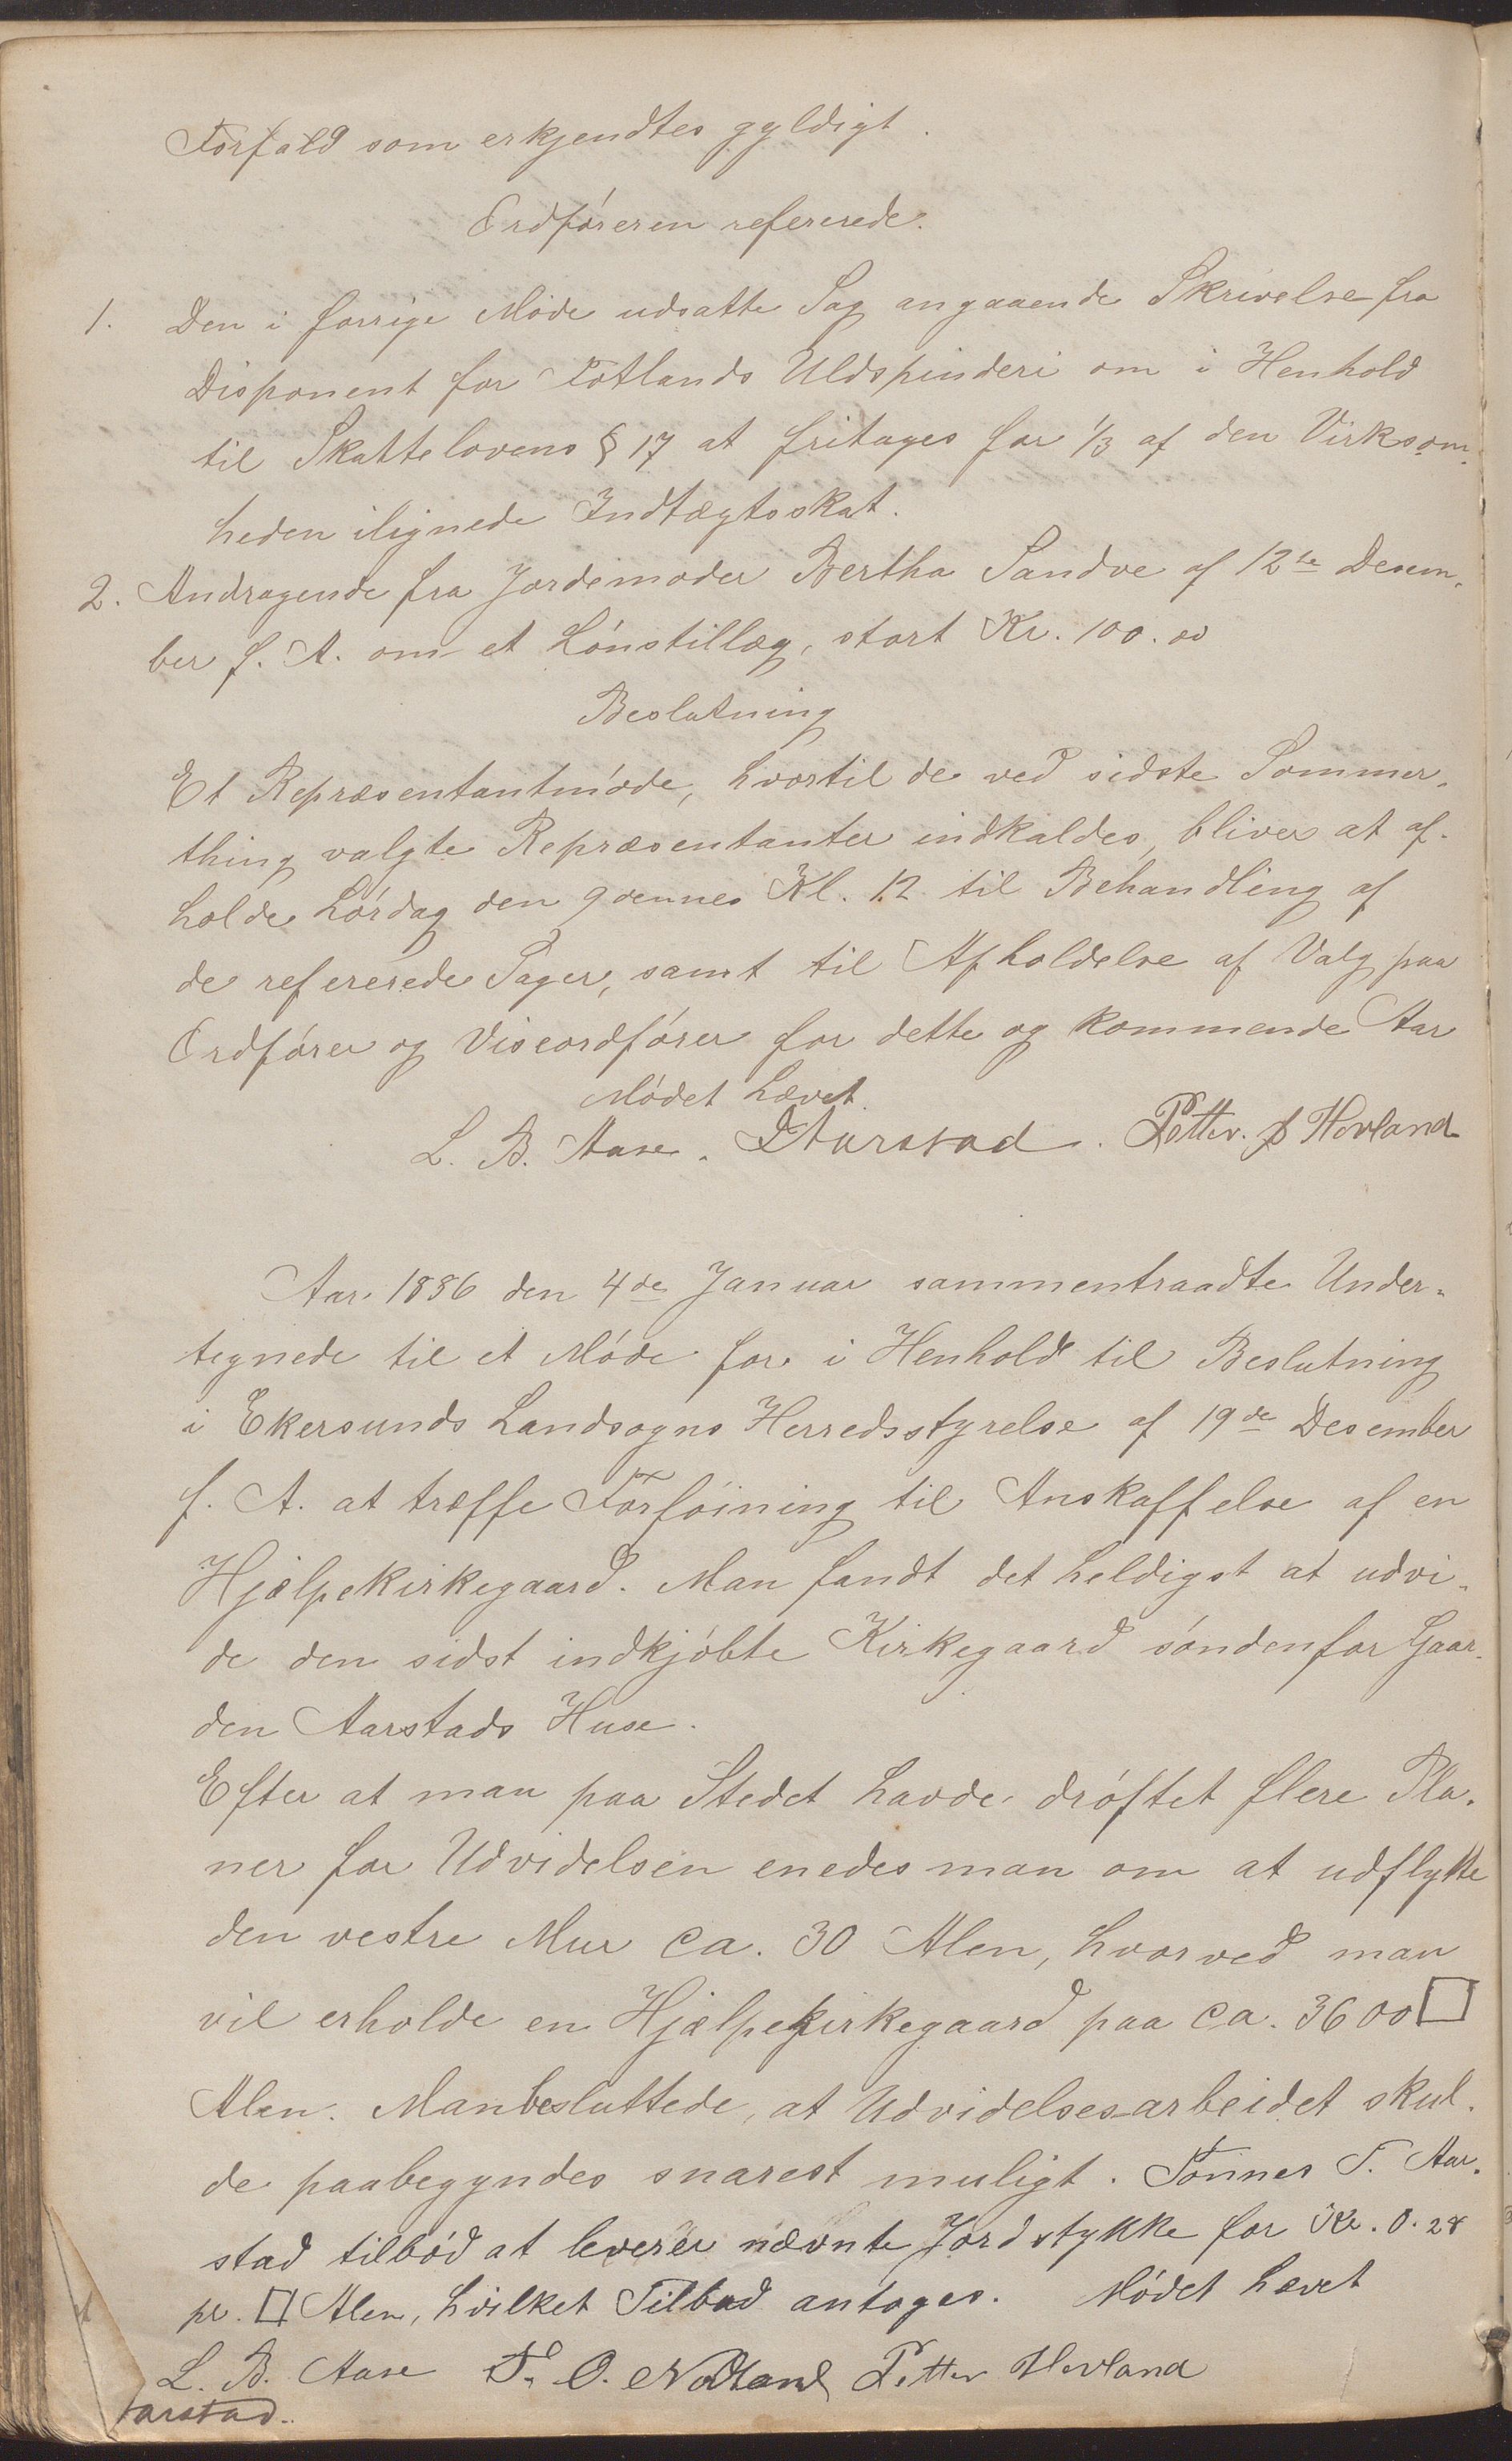 Forfald som erkjendtes gyldigt.
Ordføreren refererede.
1. Den i forrige Møde udsatte Sag angaaende Skrivelse fra
Disponent for Fotlands Uldspinderi om i Henhold
til Skattelovens § 17 at fritages for 1/3 af den Virksom-
heden ilignede Indtægtsskat.
2. Andragende fra Jordemoder Bertha Sandve af 12te Desem-
ber f. A. om et Lønstillæg, stort Kr. 100.00
Beslutning
Et Repræsentantmøde, hvortil de ved sidste Sommer-
thing valgte Repræsentanter indkaldes, bliver at af-
holde Lørdag den 9 dennes Kl. 12 til Behandling af
de refererede Sager, samt til Afholdelse af Valg paa
Ordfører og Viseordfører for dette og kommende Aar
Mødet hævet.
L. B. Aase. Aarstad. Petter. Hovland
Aar 1886 den 4de Januar sammentraadte Under-
tegnede til et Møde for i Henhold til Beslutning
i Ekersunds Landsogns Herredsstyrelse af 19de Desember
f. A. at træffe Forføining til Anskaffelse af en
Hjælpekirkegaard. Man fandt det heldigst at udvi-
de den sidst indkjøbte Kirkegaard søndenfor Gaar-
den Aarstads Huse.
Efter at man paa Stedet havde drøftet flere Pla-
ner for Udvidelsen enedes man om at udflytte
den vestre Mur ca. 30 Alen, hvorved man
vil erholde en Hjælpekirkegaard paa ca. 3600 □
Alen. Man besluttede, at Udvidelsesarbeidet skul-
de paabegyndes snarest muligt. Tønnes T. Aar-
stad tilbød at leverer nævnte Jordstykke for Kr. 0.28
pr. □ Alen, hvilket Tilbud antoges. Mødet hævet
L. B. Aase T. O. Nodland Petter Hovland
Aarstad.